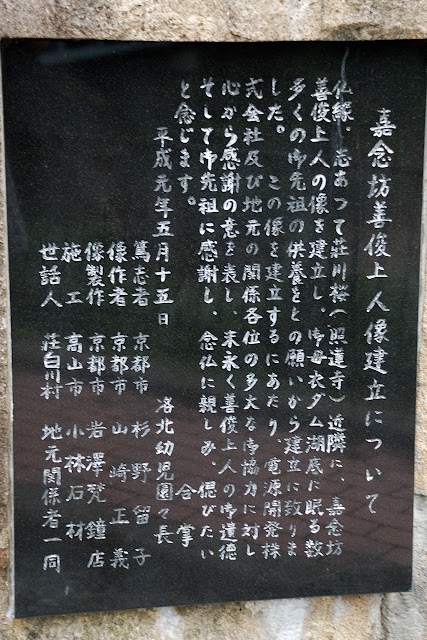 嘉念坊善俊上人像建立について
仏縁の志あつて荘川桜(照蓮寺)近隣に、嘉念坊
善俊上人の像を建立し、御母衣ダム湖底に眠る数
多くの御先祖の供養をとの願いから建立に致りま
した。 この像を建立するにあたり、電源開発株
式会社及び地元の関係各位の多大な御協力に対し
心から感謝の意を表し、末永く善俊上人の御遺徳
そして御先祖に感謝し、念仏に親しみ、偲びたい
と念じます。 合掌
平成元年五月十五日 洛北幼児園々長
篤志者 京都市 杉野留子
像作者 京都市 山崎正義
像製作 京都市 岩澤梵鐘店
施工 高山市 小林石材
世話人 荘白川村 地元関係者一同